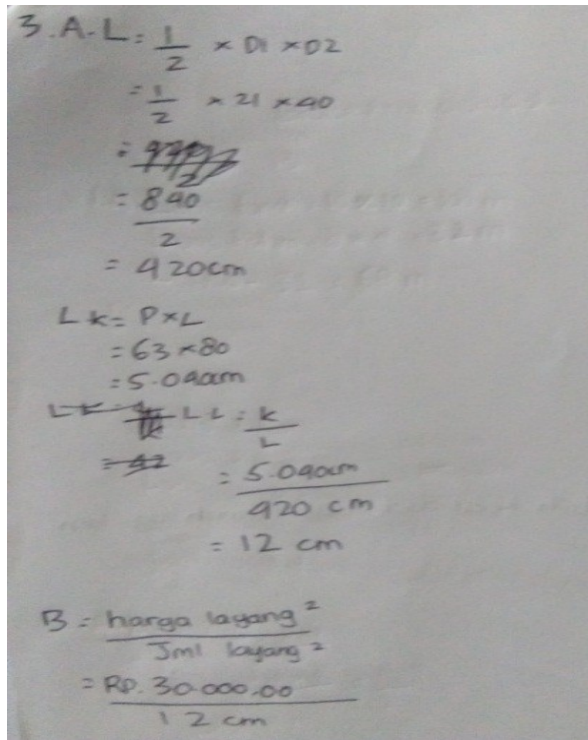 3. A. L = 1/2 × D1 × D2
= 1/2 × 21 × 40
= 840/2
= 420cm
Lk = P×L
= 63×80
= 5.040cm
LL = k/L
= 5.040cm/420 cm
= 12 cm
B = harga layang²/Jml layang²
= RP. 30.000.00/12 cm